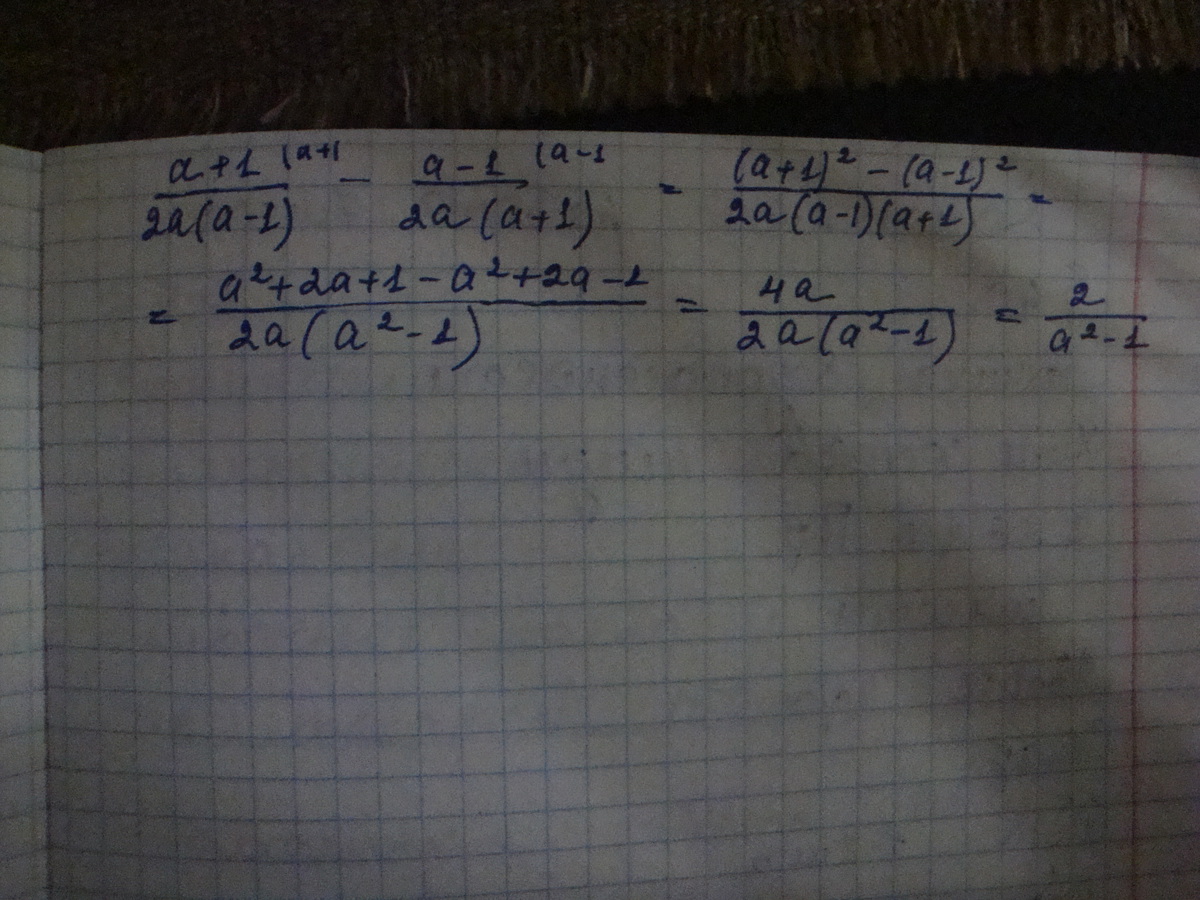 a+1 (a+1 / 2a(a-1) - a-1 (a-1 / 2a(a+1) = (a+1)² - (a-1)² / 2a(a-1)(a+1) =
= a²+2a+1-a²+2a-1 / 2a(a²-1) = 4a / 2a(a²-1) = 2 / a²-1